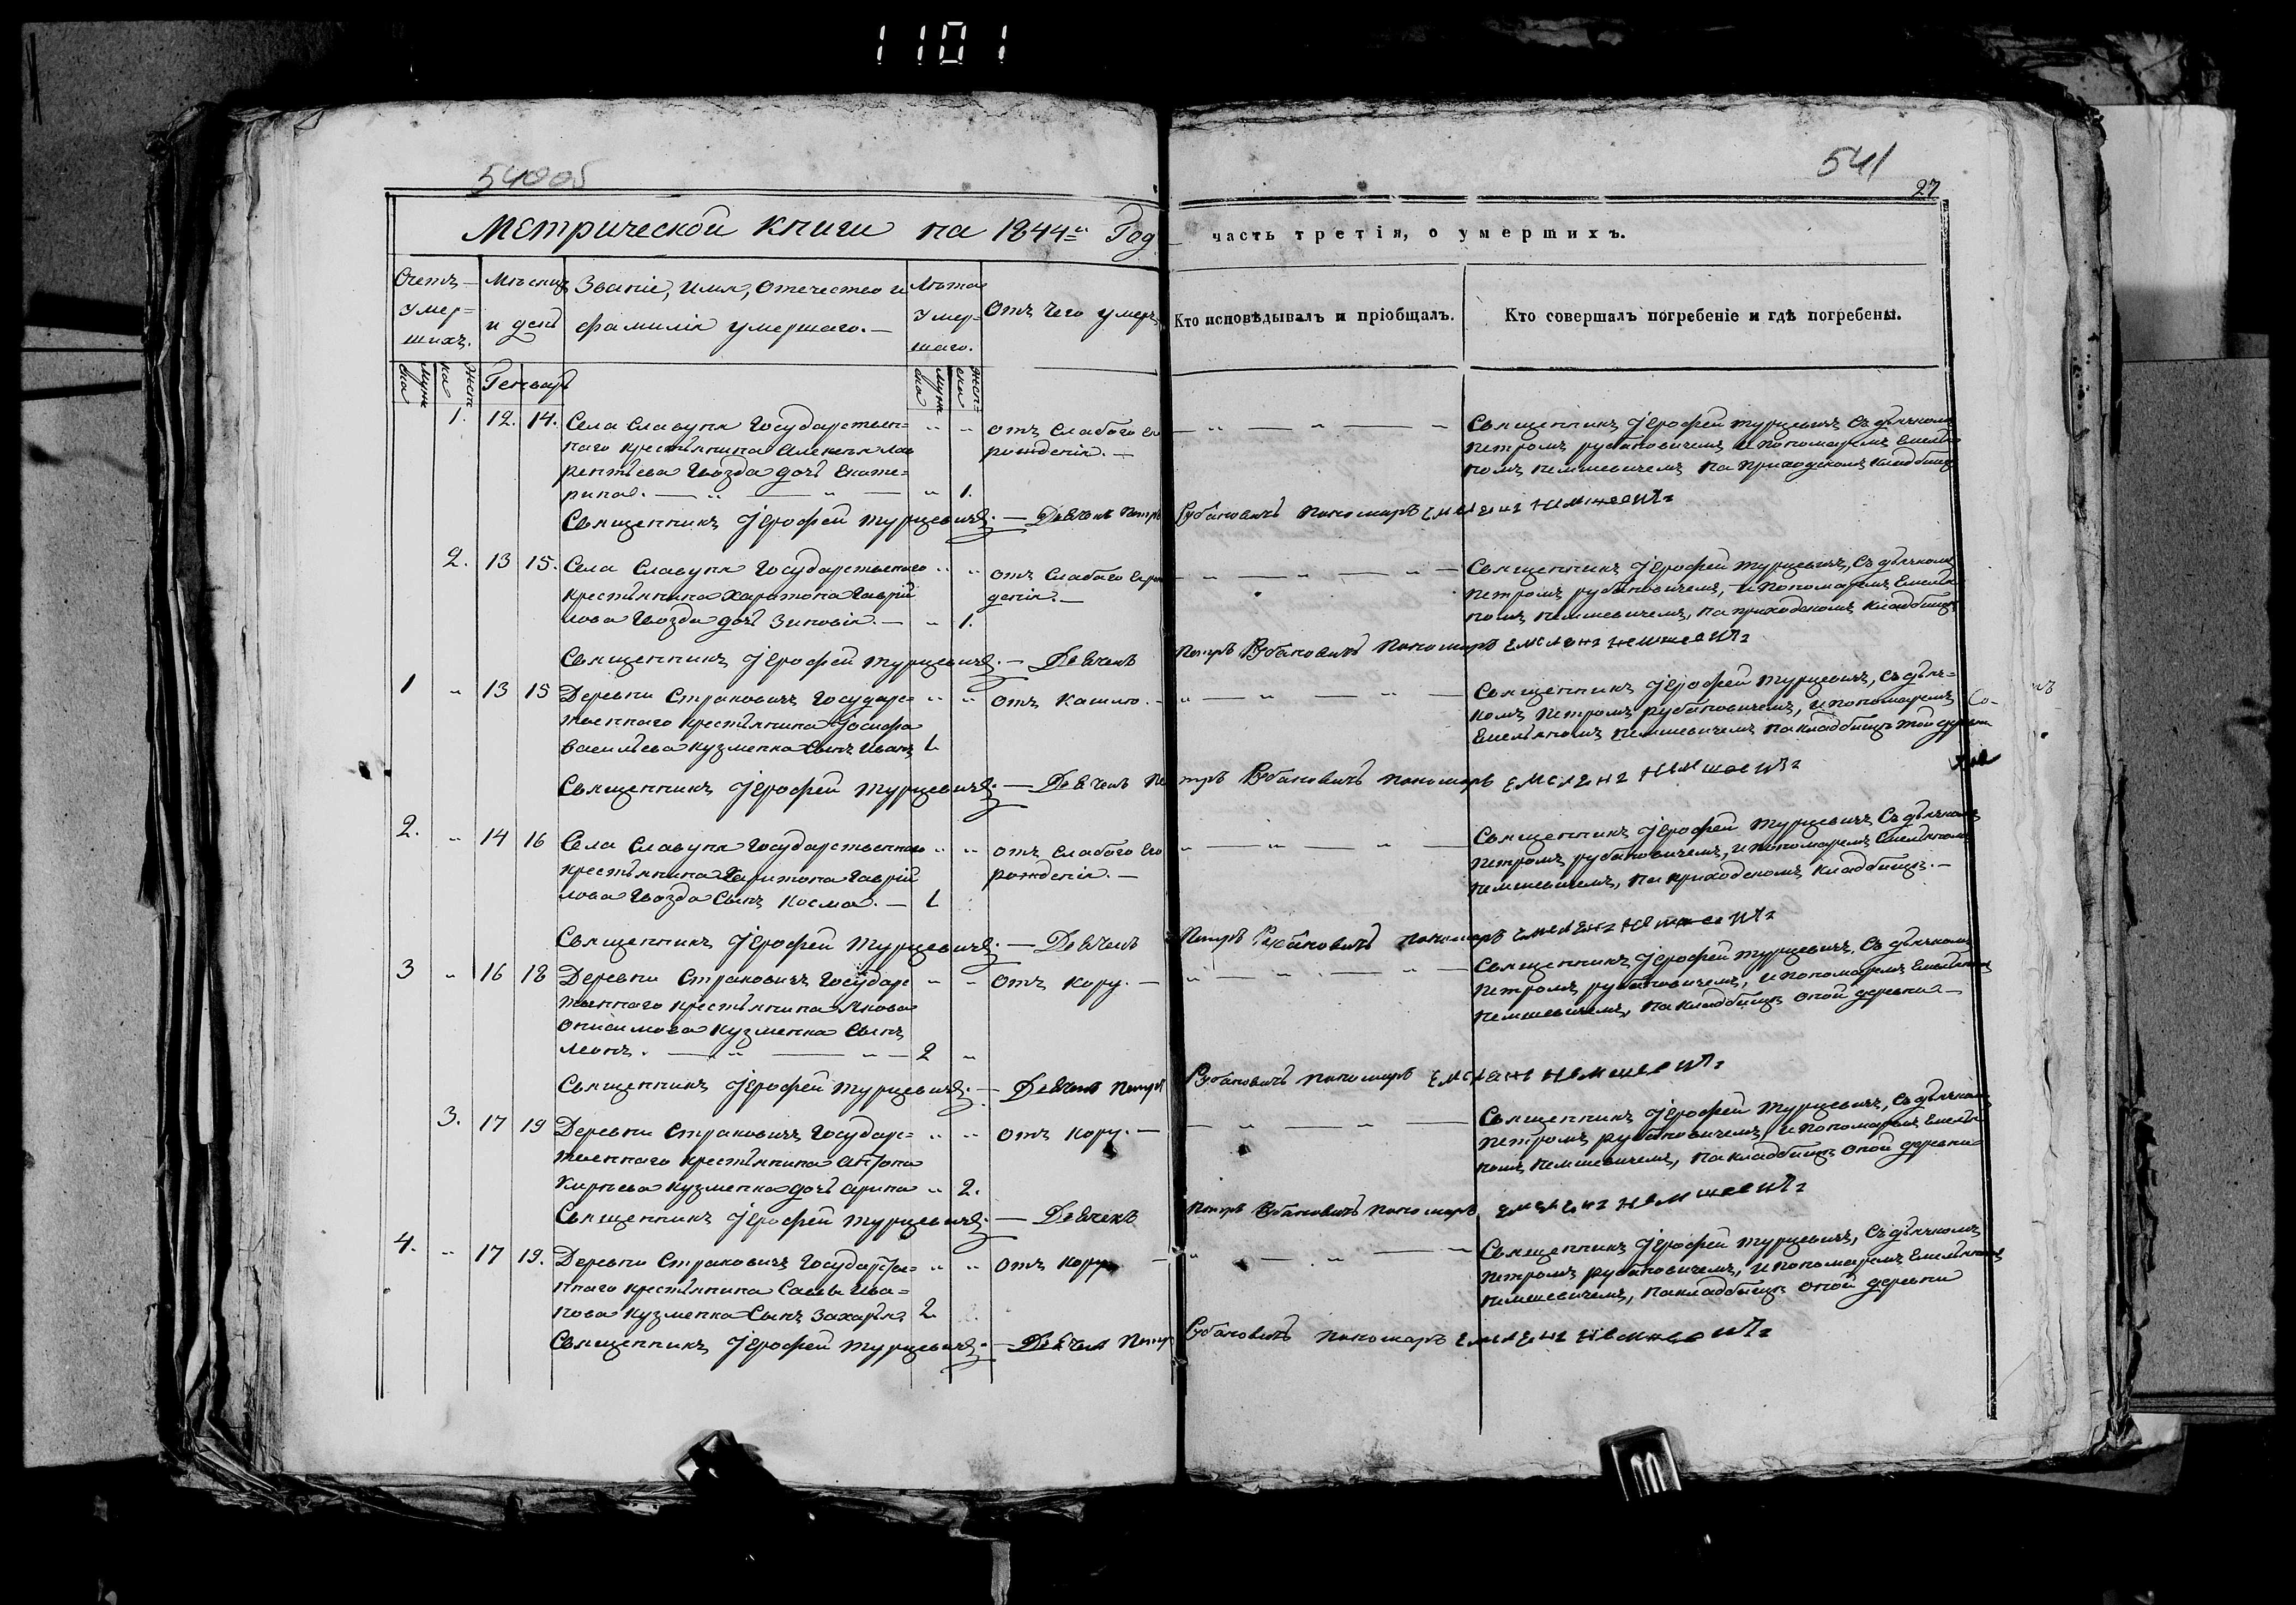 1101
540об
541
27
Метрической книги на 1844й Год часть третія, о умершихъ.
Счетъ умер=шихъ.
Мѣсяцъ и день
Званіе, Имя, Отечество и фамилія умершаго.—
Лѣта умер=шаго.
Отъ чего умеръ
Кто исповѣдывалъ и пріобщалъ.
Кто совершалъ погребеніе и гдѣ погребены.
Генварь
1. 12. 14. Села Славуня Государствен=
наго крестьянина Алексѣя Лав
рентьева Гвозда дочь Екате=
рина. — 1.
отъ слабого ея
рожденія.—
Священникъ Іерофей Турцевичъ Съ дьячкомъ
Петромъ Рубановичемъ и Пономаремъ Емелья
номъ Немшевичемъ на приходскомъ кладбищѣ
Священникъ Іерофей Турцевичъ.— Дьячекъ Петръ Рубановичъ Пономаръ Емелянъ Немшевичъ
2. 13 15. Села Славуня Государственного
крестьянина Харитона Гаврій
лова Гвозда дочь Зиновія.— 1.
отъ слабаго ея рож
денія.—
Священникъ Іерофей Турцевичъ, Съ дьячкомъ
Петромъ Рубановичемъ, и Пономаремъ Емелья
номъ Немшевичемъ, на приходскомъ кладбищѣ
Священникъ Іерофей Турцевичъ.— Дьячекъ Петръ Рубановичъ Пономаръ Емелянъ Немшевичъ
1 13 15 Деревни Страковичъ Государ=
твеннаго крестьянина Іосифа
Васильева Кузменка Сынъ Иванъ 1.
отъ кашлю.—
Священникъ Іерофей Турцевичъ, Съ дьяч=
комъ Петромъ Рубановичемъ, и Пономаремъ
Емельяномъ Немшевичемъ на кладбищѣ той деревни
Священникъ Іерофей Турцевичъ.— Дьячекъ Петръ Рубановичъ Пономаръ Емелянъ Немшевичъ
2. 14 16 Села Славуня Государственнаго
крестьянина Харитона Гаврій
лова Гвозда Сынъ Косма.— 1
отъ слабого его
рожденія.—
Священникъ Іерофей Турцевичъ Съ дьячкомъ
Петромъ Рубановичемъ, и Пономаремъ Емельяномъ
Немшевичемъ, на приходскомъ кладбищѣ.—
Священникъ Іерофей Турцевичъ.— Дьячекъ Петръ Рубановичъ Пономаръ Емелянъ Немшевичъ
3 16 18 Деревни Страковичъ Государ=
твеннаго крестьянина Якова
Онисимова Кузменка Сынъ
Леонъ. — 2
отъ кору.—
Священникъ Іерофей Турцевичъ, Съ дьячкомъ
Петромъ Рубановичемъ, и Пономаремъ Емельяномъ
Немшевичемъ, на кладбищѣ оной деревни—
Священникъ Іерофей Турцевичъ.— Дьячекъ Петръ Рубановичъ Пономаръ Емелянъ Немшевичъ
3. 17 19 Деревни Страковичъ Государ=
твеннаго крестьянина Антона
Карпева Кузменка дочь Арина 2.
отъ кору.—
Священникъ Іерофей Турцевичъ, Съ дьячкомъ
Петромъ Рубановичемъ, и Пономаремъ Емелья
номъ Немшевичемъ, на кладбищѣ оной деревни
Священникъ Іерофей Турцевичъ.— Дьячекъ Петръ Рубановичъ Пономаръ Емелянъ Немшевичъ
4. 17 19. Деревни Страковичъ Государстве=
ннаго крестьянина Савы Ива=
нова Кузменка Сынъ Захарія 2.
отъ кору
Священникъ Іерофей Турцевичъ, Съ дьячкомъ
Петромъ Рубановичемъ, и Пономаремъ Емельяномъ
Немшевичемъ, на кладбищѣ оной деревни
Священникъ Іерофей Турцевичъ.— Дьячекъ Петръ Рубановичъ Пономаръ Емелянъ Немшевичъ